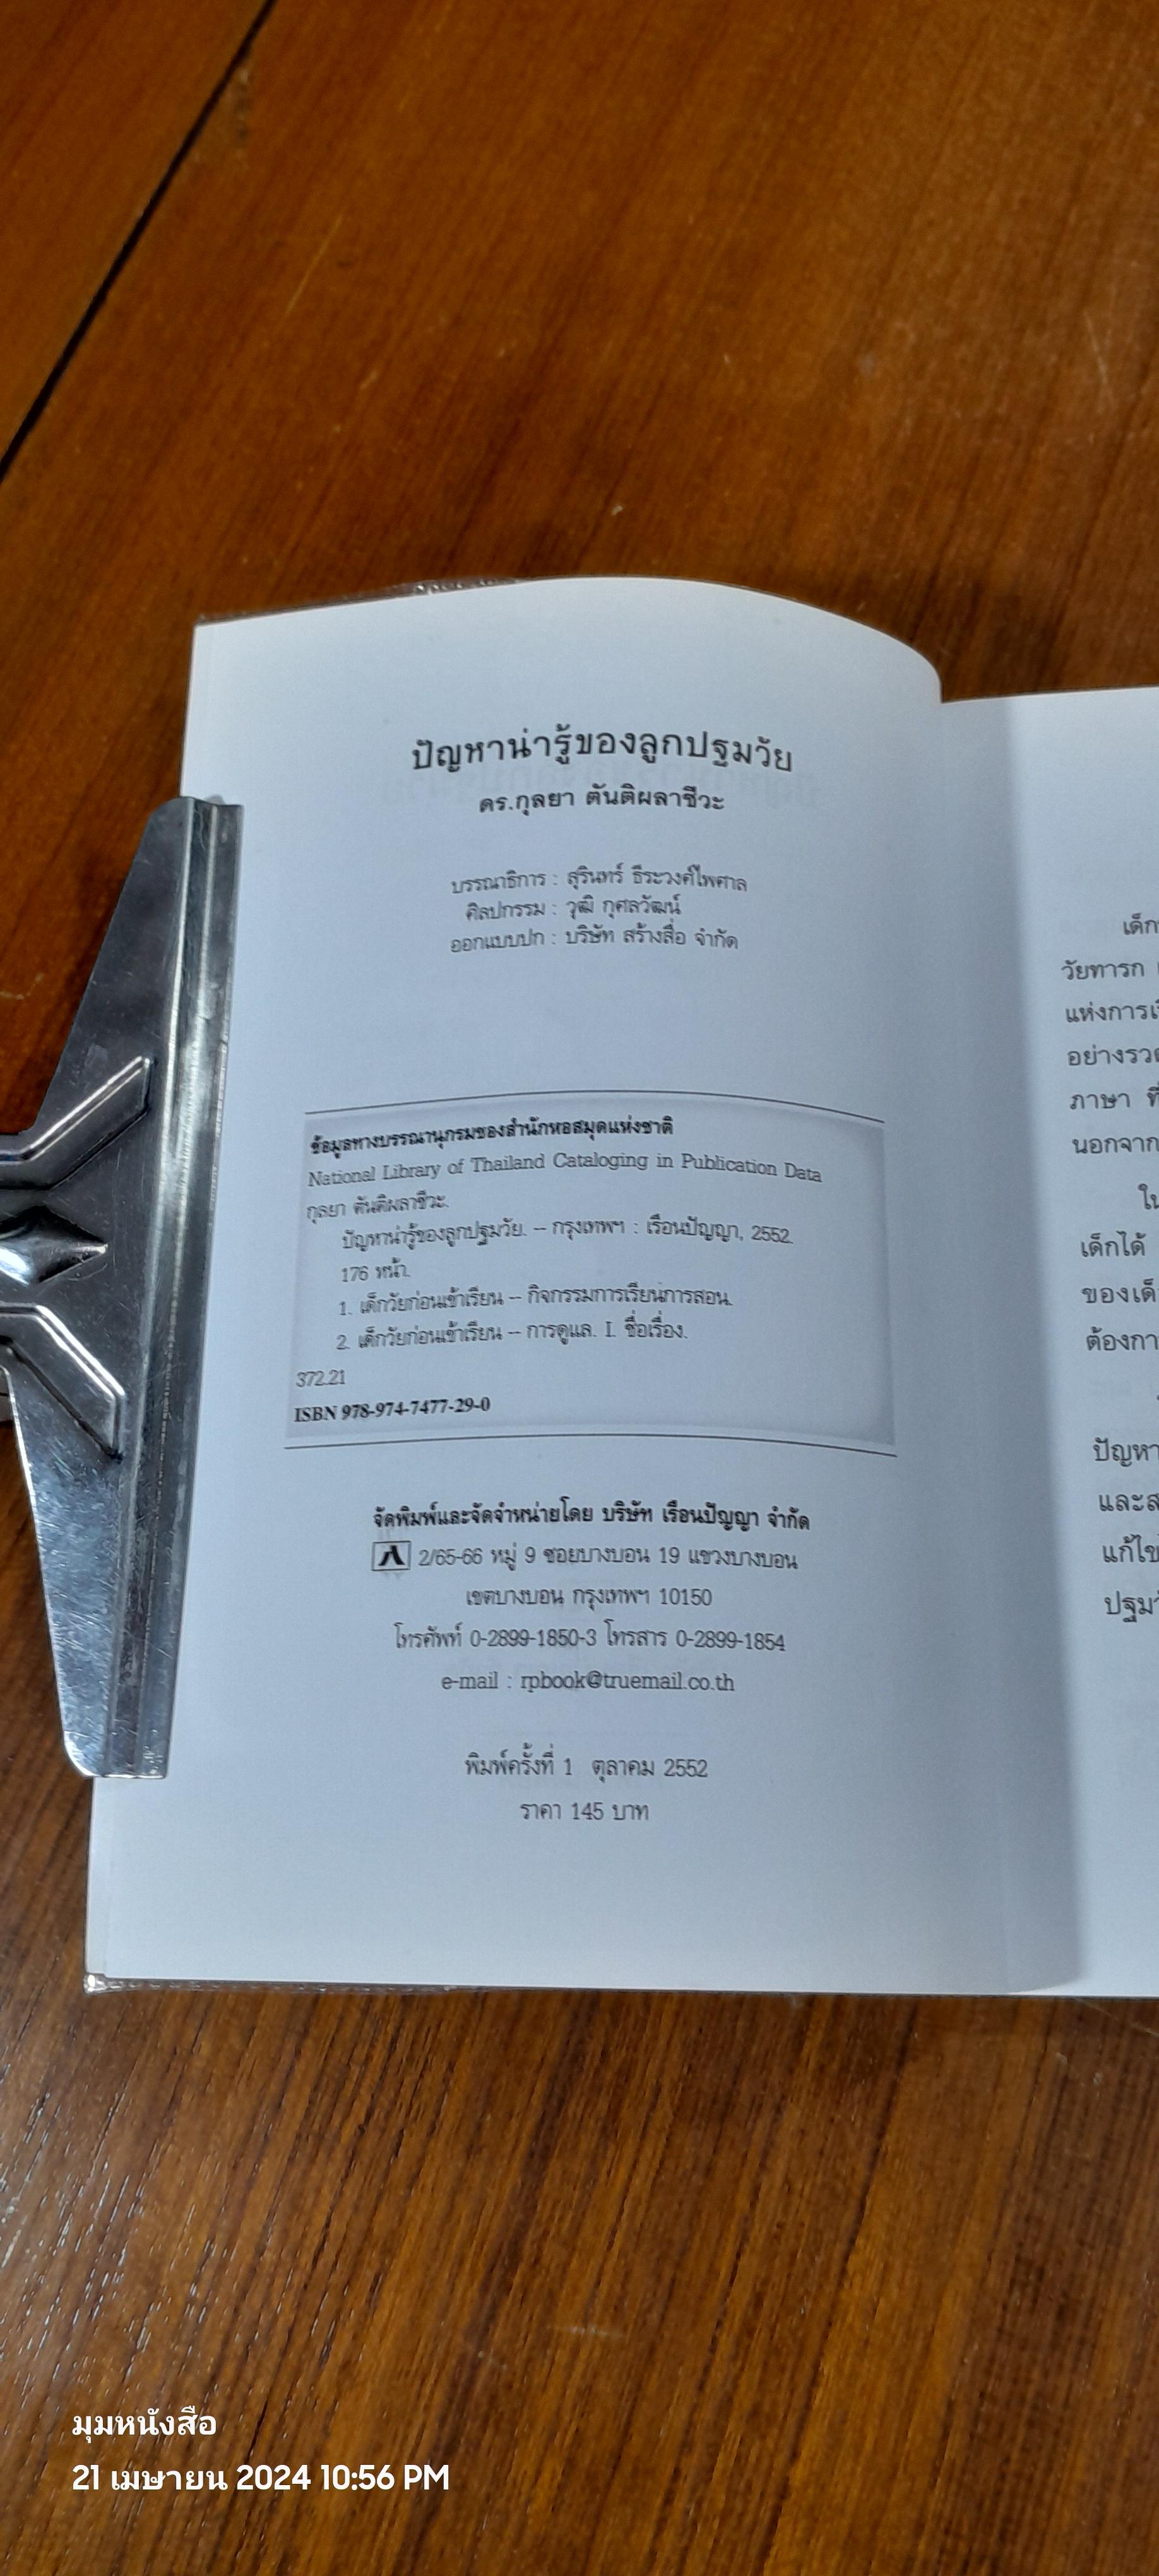 ปัญหาน่ารู้ของลูกปฐมวัย
ดร.กุลยา ตันติผลาชีวะ
บรรณาธิการ : สุรินทร์ ธีระวงศ์ไพศาล
ศิลปกรรม : วุฒิ กุศลวัฒน์
ออกแบบปก : บริษัท สร้างสื่อ จำกัด
ข้อมูลทางบรรณานุกรมของสำนักหอสมุดแห่งชาติ
National Library of Thailand Cataloging in Publication Data
กุลยา ตันติผลาชีวะ.
ปัญหาน่ารู้ของลูกปฐมวัย. -- กรุงเทพฯ : เรือนปัญญา, 2552.
176 หน้า.
1. เด็กวัยก่อนเข้าเรียน -- กิจกรรมการเรียนการสอน.
2. เด็กวัยก่อนเข้าเรียน -- การดูแล. I. ชื่อเรื่อง.
372.21
ISBN 978-974-7477-29-0
จัดพิมพ์และจัดจำหน่ายโดย บริษัท เรือนปัญญา จำกัด
2/65-66 หมู่ 9 ซอยบางบอน 19 แขวงบางบอน
เขตบางบอน กรุงเทพฯ 10150
โทรศัพท์ 0-2899-1850-3 โทรสาร 0-2899-1854
e-mail : rpbook@truemail.co.th
พิมพ์ครั้งที่ 1 ตุลาคม 2552
ราคา 145 บาท
เด็ก
วัยทารก
แห่งการเ
อย่างรวด
ภาษา ที่
นอกจาก
ใน
เด็กได้
ของเด็
ต้องกา
ปัญหา
และส
แก้ไข
ปฐมวั
มุมหนังสือ
21 เมษายน 2024 10:56 PM